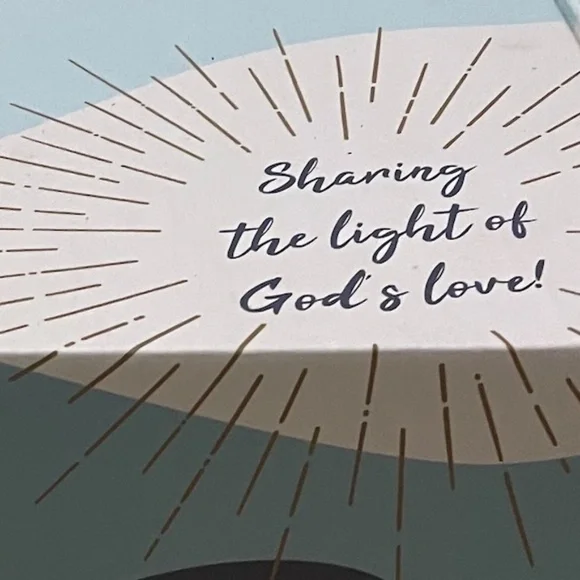 Sharing
the light of
God's love!